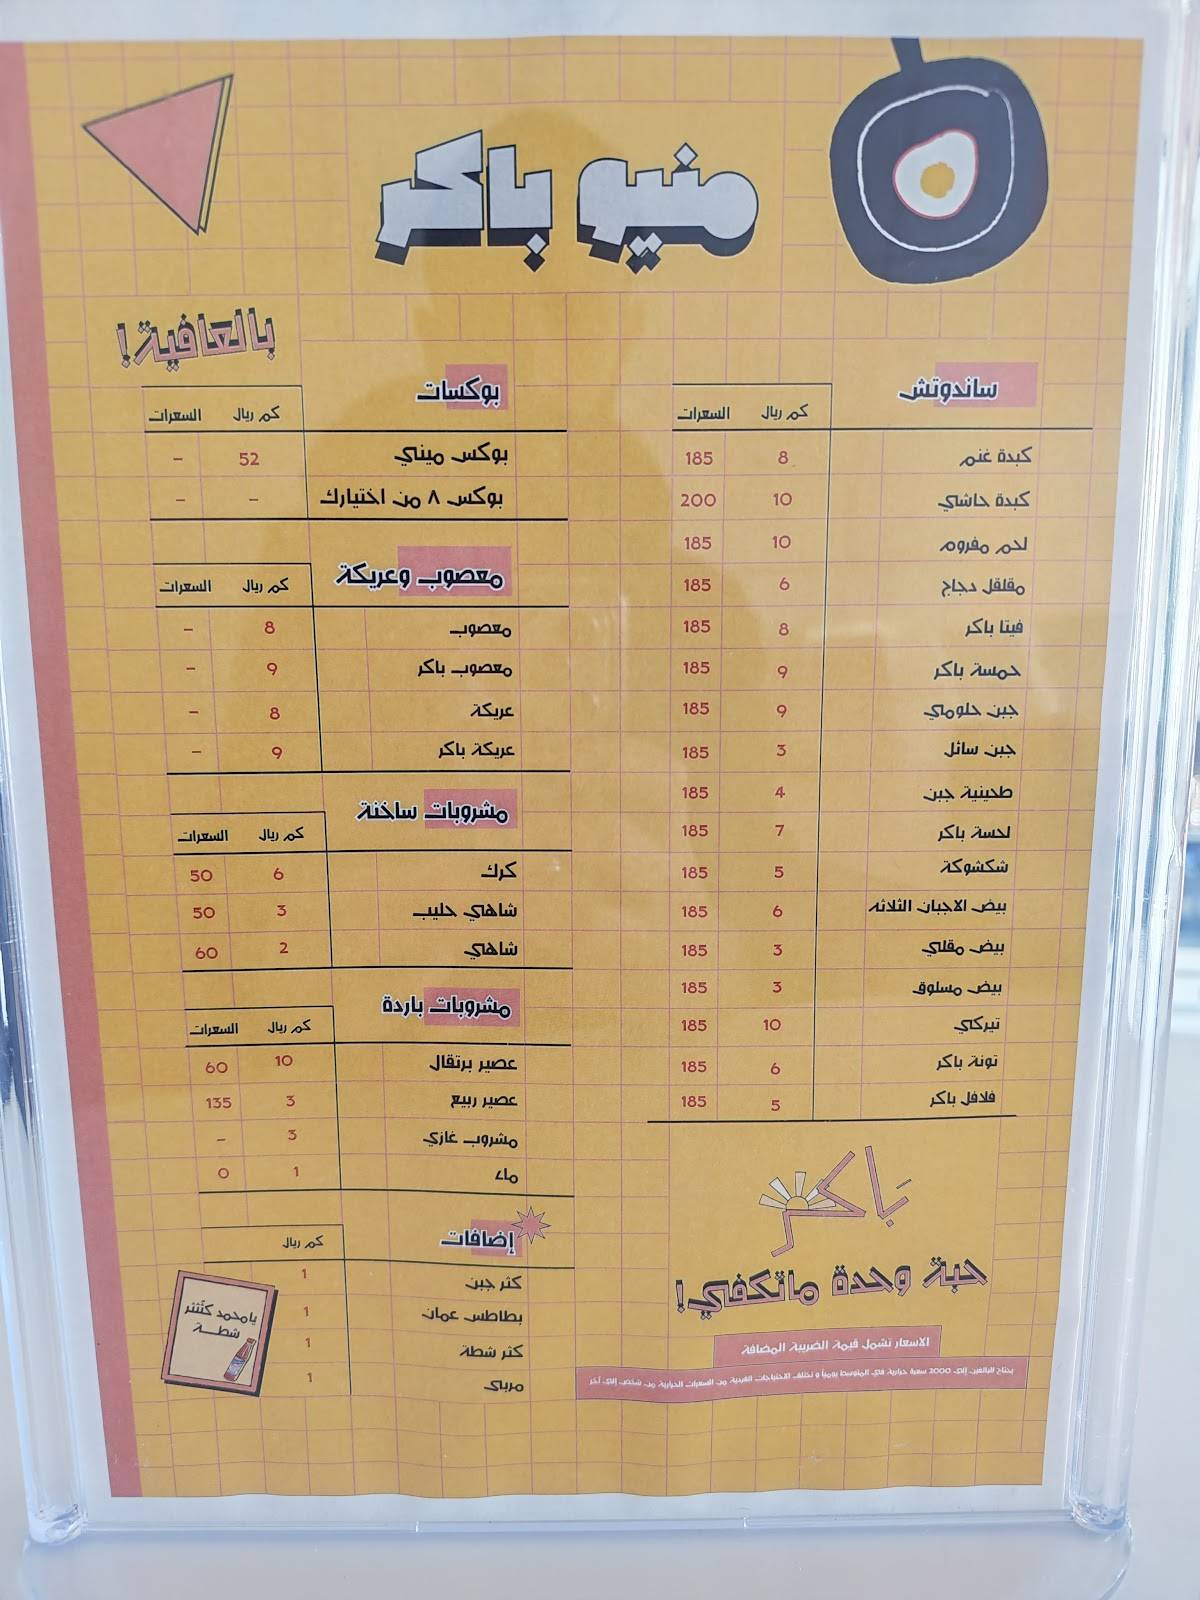 منيو باكر
ساندوتش
كم ريال السعرات
كبدة غنم 8 185
كبدة حاشي 10 200
لحم مفروم 10 185
مقلقل دجاج 6 185
فيتا باكر 8 185
خمسة باكر 9 185
جبن حلومي 9 185
جبن سائل 3 185
طحينية جبن 4 185
لحسة باكر 7 185
شكشوكة 5 185
بيض الاجبان الثلاثه 6 185
بيض مقلي 3 185
بيض مسلوق 3 185
تيركي 10 185
تونة باكر 6 185
فلافل باكر 5 185
باكر
حبة وحدة ماتكفي!
الاسعار تشمل قيمة الضريبة المضافة
يحتاج البالغين إلى 2000 سعرة حرارية في المتوسط يومياً و تختلف الاحتياجات الفردية من السعرات الحرارية من شخص إلى آخر
بالعافية!
بوكسات
كم ريال السعرات
بوكس ميني 52 -
بوكس ٨ من اختيارك - -
معصوب وعريكة
كم ريال السعرات
معصوب 8 -
معصوب باكر 9 -
عريكة 8 -
عريكة باكر 9 -
مشروبات ساخنة
كم ريال السعرات
كرك 6 50
شاهي حليب 3 50
شاهي 2 60
مشروبات باردة
كم ريال السعرات
عصير برتقال 10 60
عصير ربيع 3 135
مشروب غازي 3 -
ماء 1 0
إضافات
كم ريال
كثر جبن 1
بطاطس عمان 1
كثر شطة 1
مربى 1
يامحمد كثثر
شطة